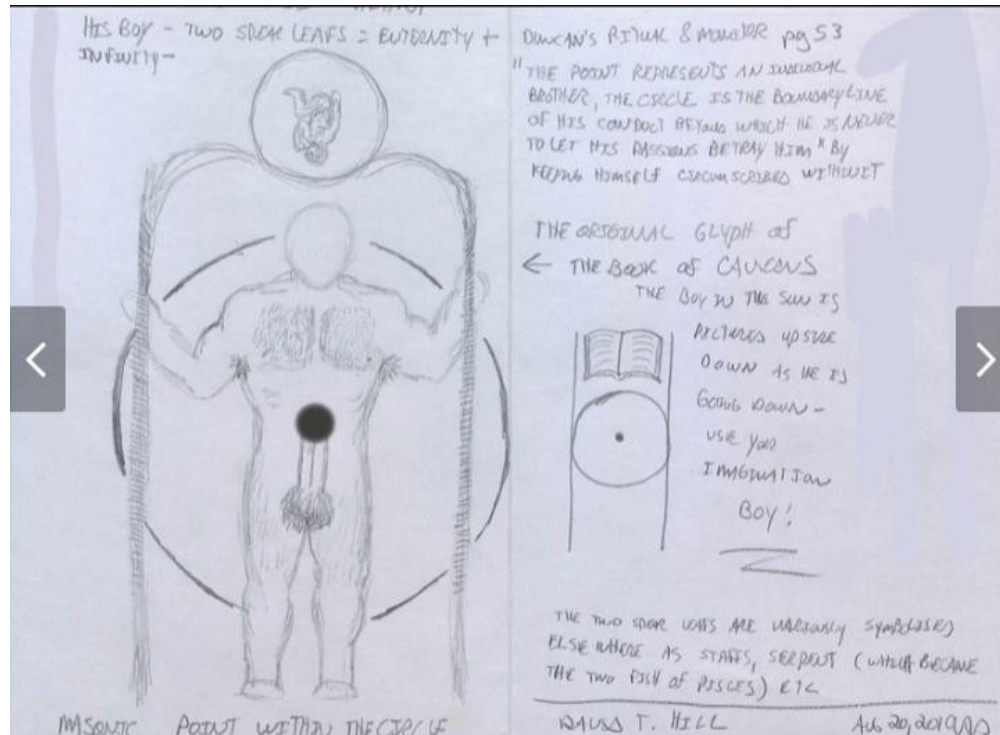 HIS BOY - TWO SPEAR LEAFS = EUTERNITY +
INFINITY -
DUNCAN'S RITUAL & MONITOR pg 53
"THE POINT REPRESENTS AN INDIVIDUAL
BROTHER, THE CIRCLE IS THE BOUNDARY LINE
OF HIS CONDUCT BEYOND WHICH HE IS NEVER
TO LET HIS PASSIONS BETRAY HIM" BY
KEEPING HIMSELF CIRCUMSCRIBED WITHIN IT
THE ORIGINAL GLYPH of
← THE BOOK of
THE BOY IN THE SUN IS
PICTURED UPSIDE
DOWN AS HE IS
GOING DOWN -
USE YOUR
IMAGINATION
BOY!
THE TWO SPEAR LEAFS ARE VARIOUSLY SYMBOLISED
ELSE WHERE AS STAFFS, SERPENT (WHICH BECAME
THE TWO FISH of PISCES) ETC
MASONIC POINT WITHIN THE CIRCLE
T. HILL
AUG 20,